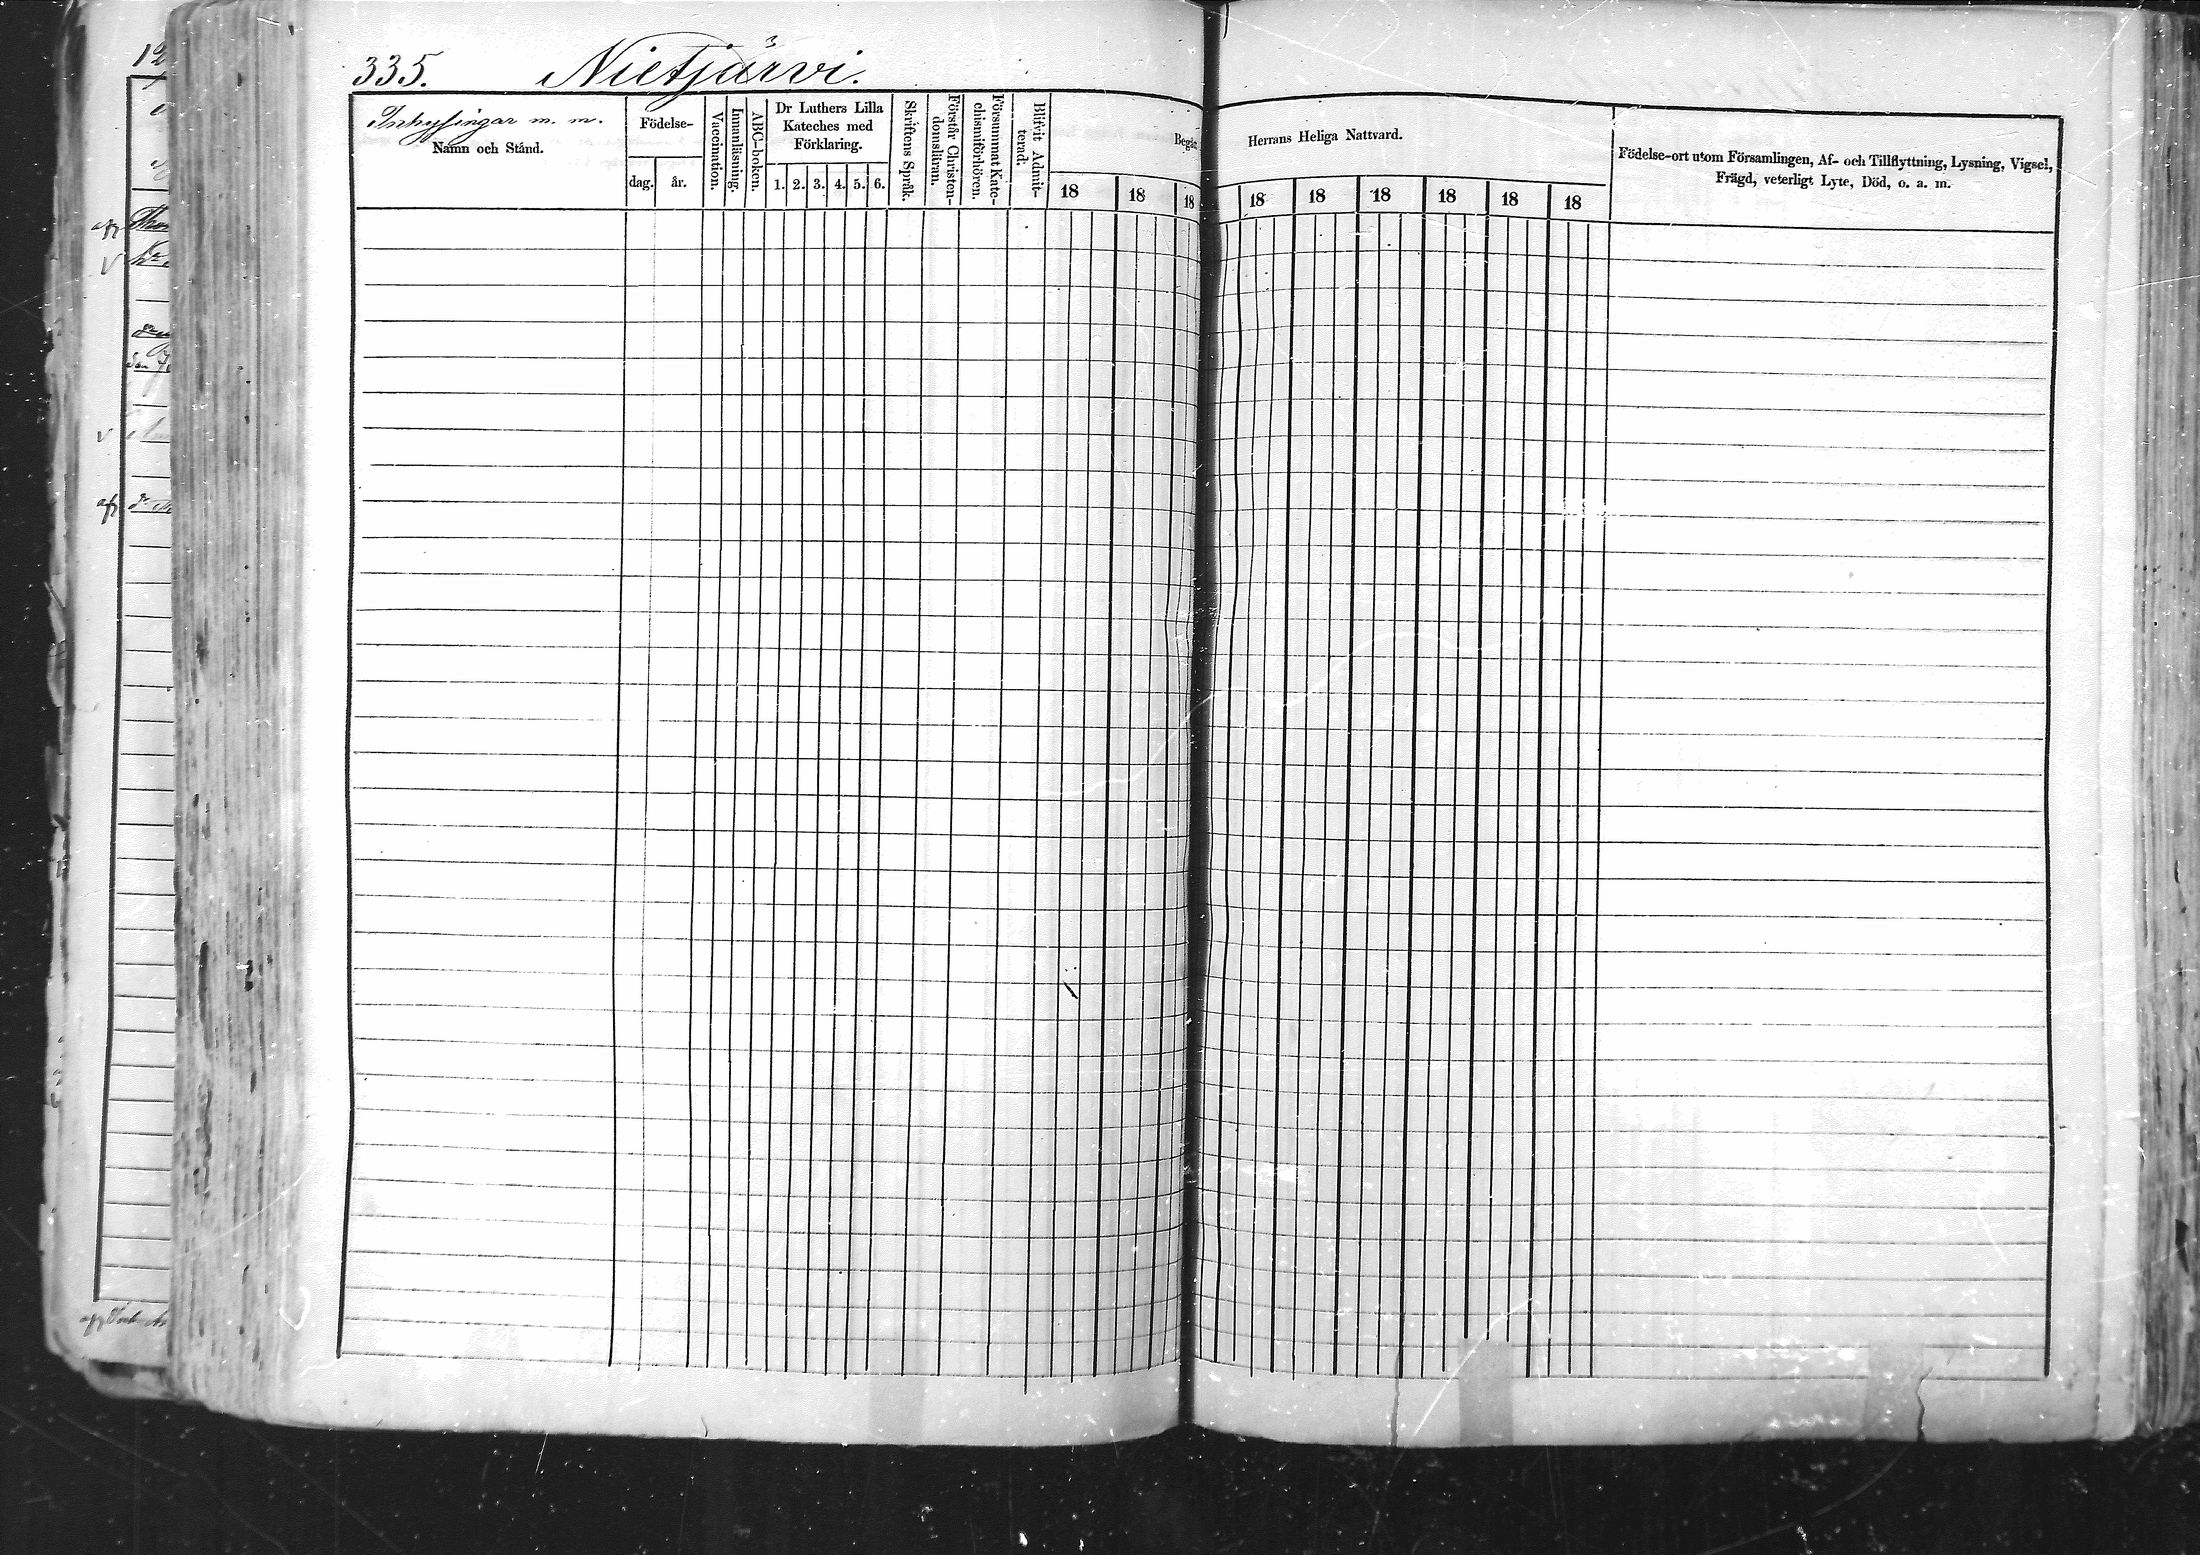 335. Nietjärvi.
Inhysingar m. m.
Namn och Stånd.
Födelse-
dag. år.
Vaccination.
Innanläsning.
ABC-boken.
Dr Luthers Lilla
Kateches med
Förklaring.
1. 2. 3. 4. 5. 6.
Skriftens Språk.
Förstår Christen-
domsläran.
Försummat Kate-
chismiförhören.
Blifvit Admit-
terad.
Begåt Herrans Heliga Nattvard.
18 18 18 18 18 18 18 18 18
Födelse-ort utom Församlingen, Af- och Tillflyttning, Lysning, Vigsel,
Frägd, veterligt Lyte, Död, o. a. m.